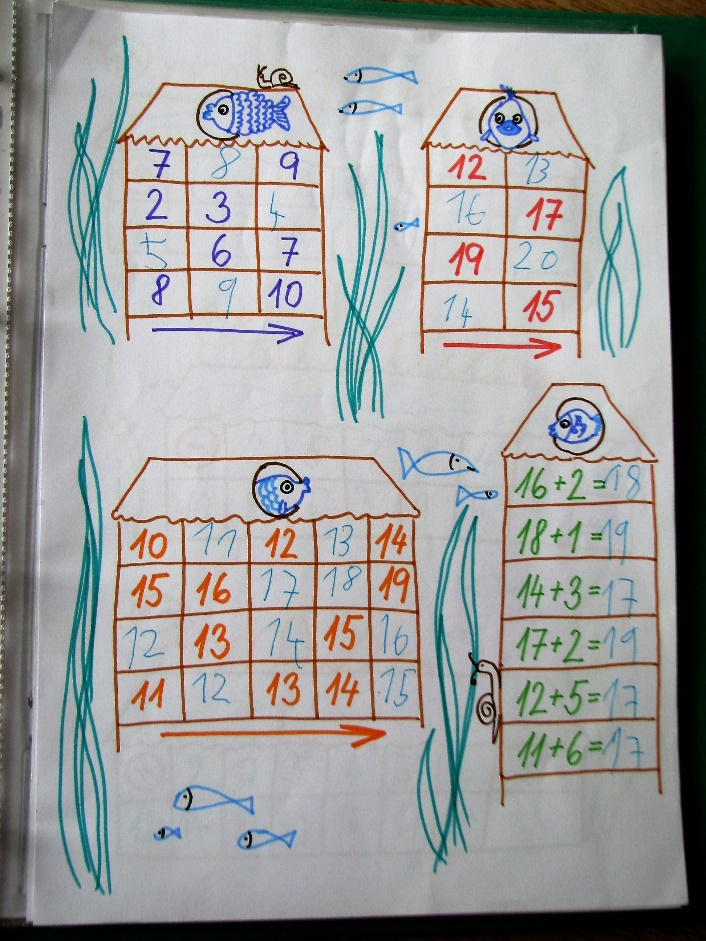 7 8 9
2 3 4
5 6 7
8 9 10
12 13
16 17
19 20
14 15
10 11 12 13 14
15 16 17 18 19
12 13 14 15 16
11 12 13 14 15
16+2=18
18+1=19
14+3=17
17+2=19
12+5=17
11+6=17